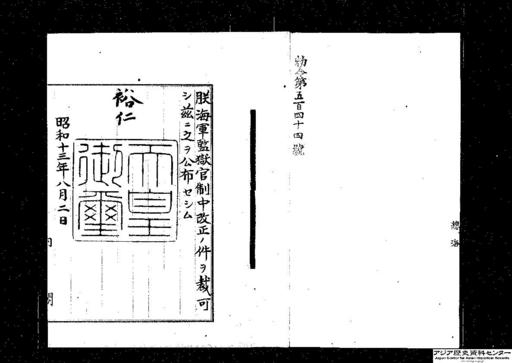 勅令第五百四十四號
朕海軍監獄官制中改正ノ件ヲ裁可
シ茲ニ之ヲ公布セシム
裕仁
天皇御璽
昭和十三年八月二日
總
海
アジア歴史資料センター
Japan Center for Asian Historical Records